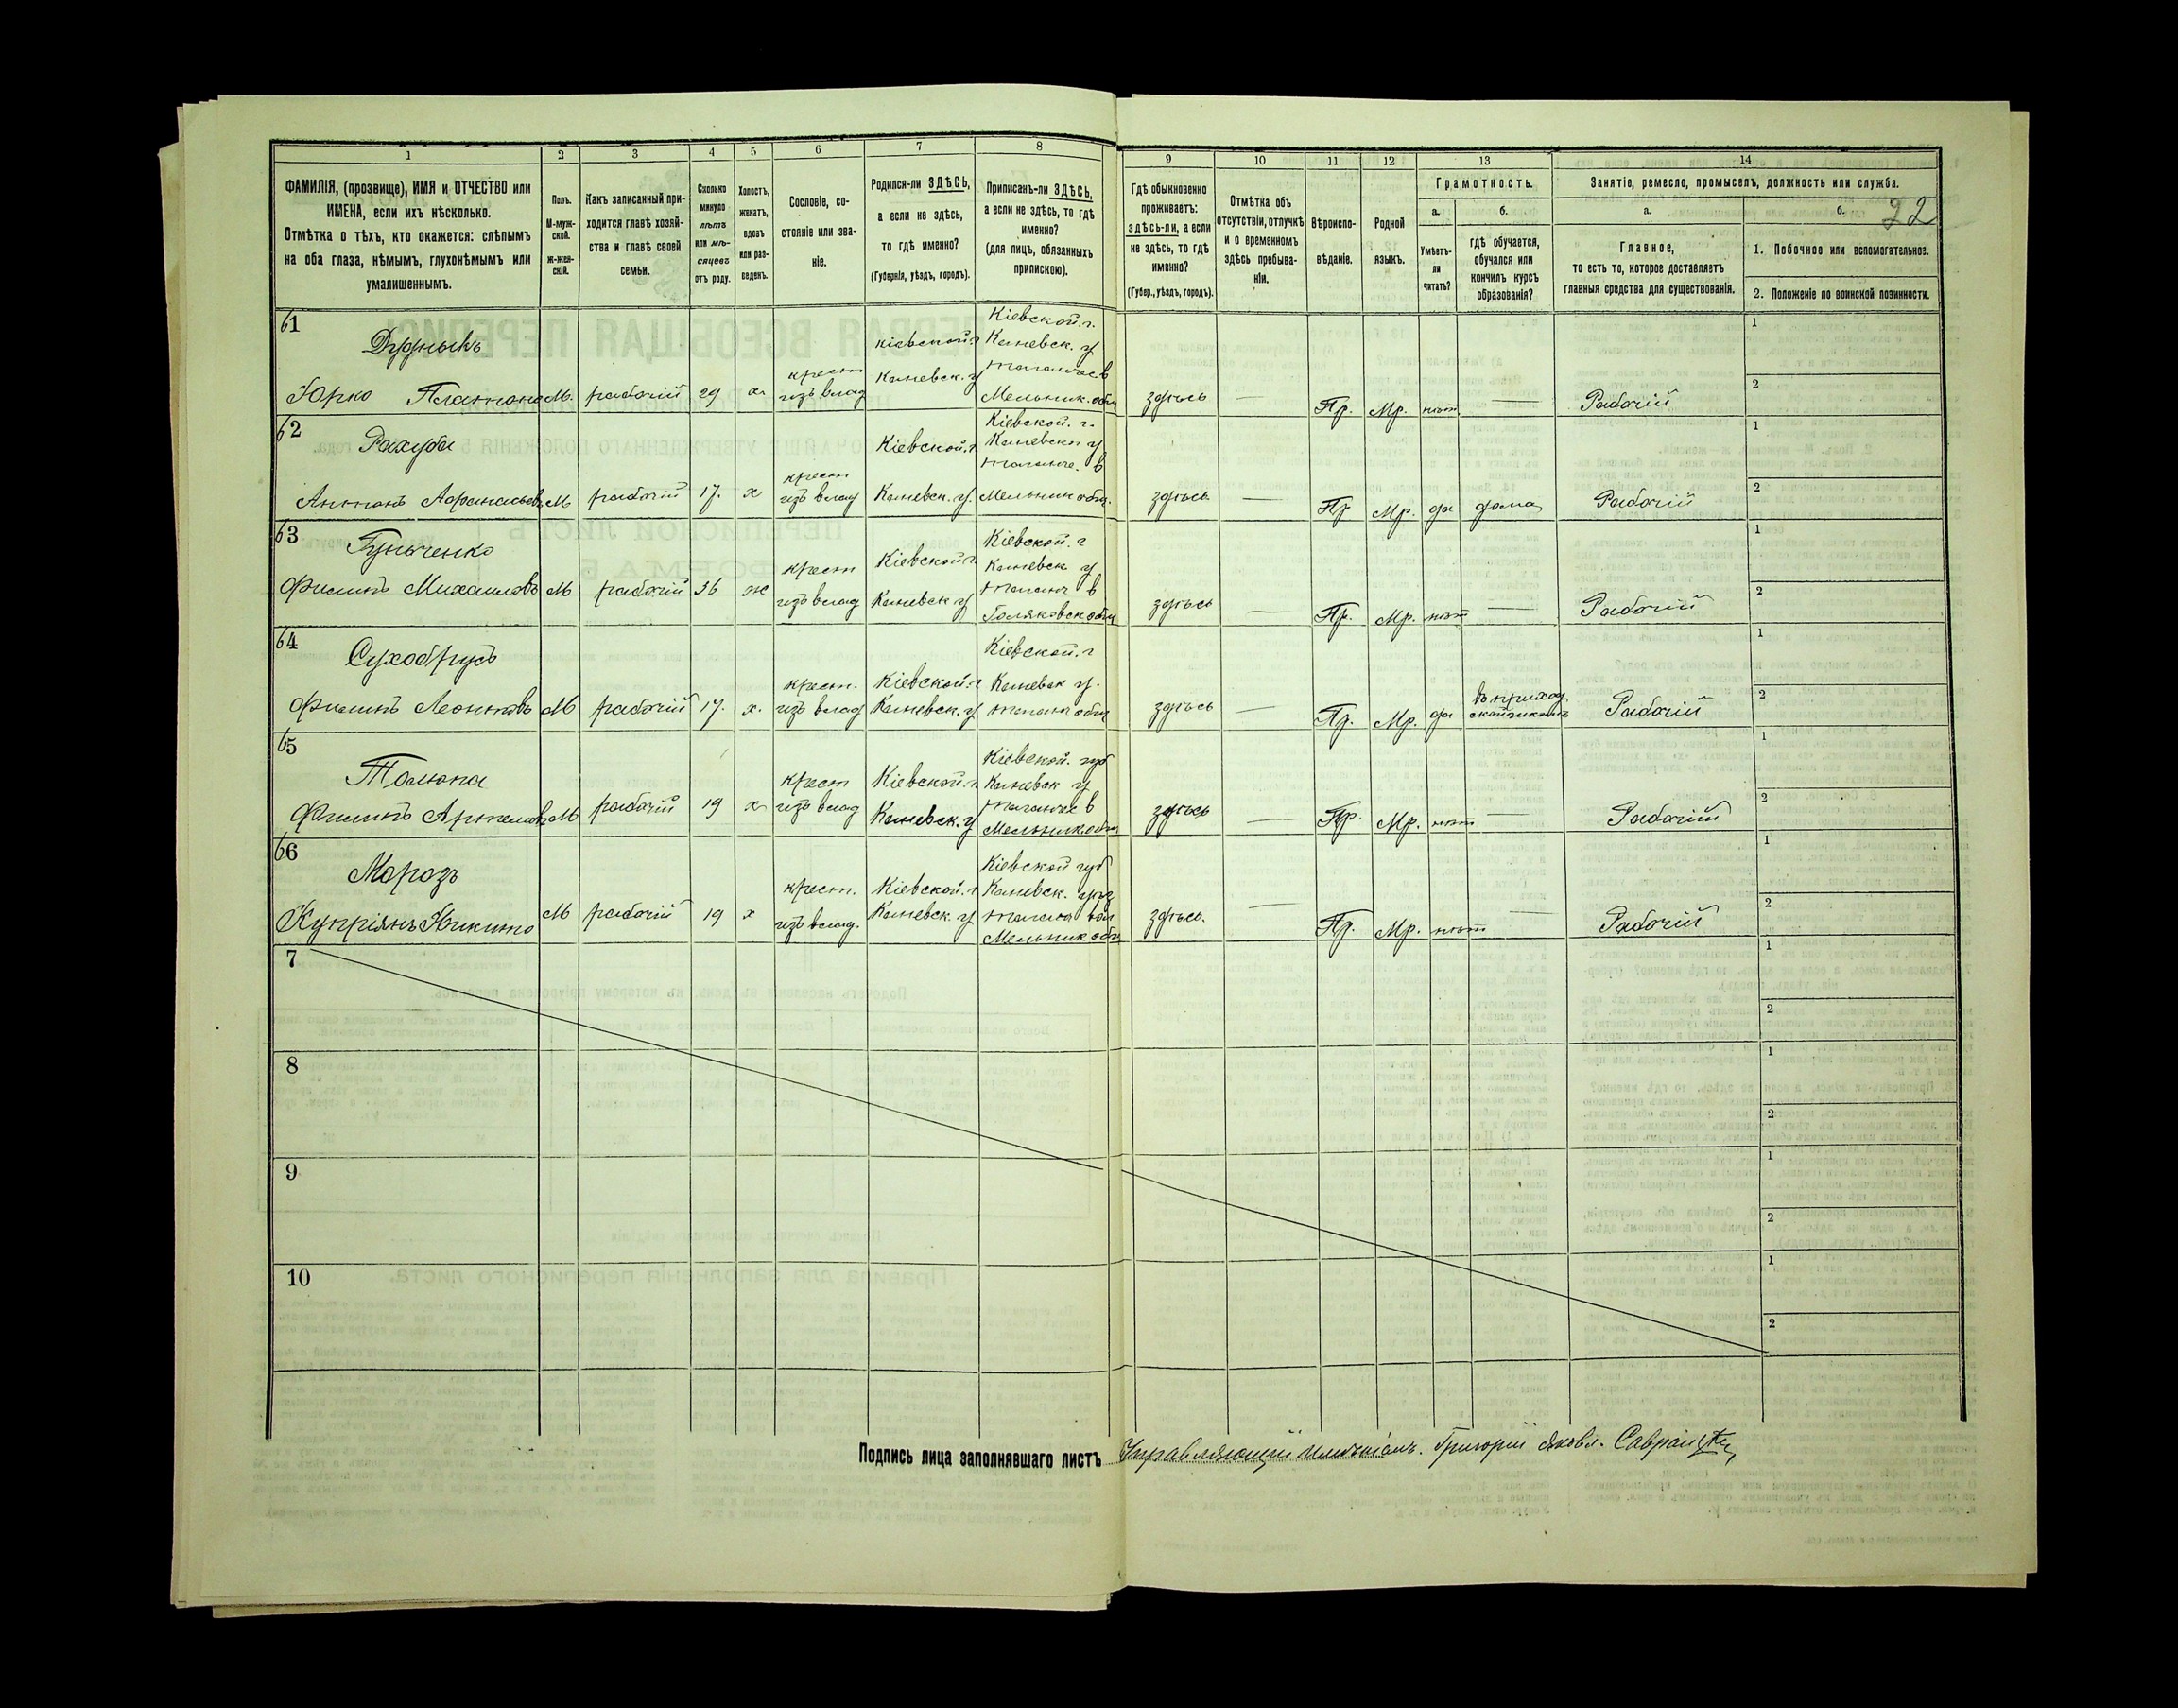 22
1 2 3 4 5 6 7 8 9 10 11 12 13 14
ФАМИЛІЯ, (прозвище), ИМЯ и ОТЧЕСТВО или
ИМЕНА, если ихъ нѣсколько.
Отмѣтка о тѣхъ, кто окажется: слѣпымъ
на оба глаза, нѣмымъ, глухонѣмымъ или
умалишеннымъ.
Полъ.
М-муж-
ской.
ж-жен-
скій.
Какъ записанный при-
ходится главѣ хозяй-
ства и главѣ своей
семьи.
Сколько
минуло
лѣтъ
или мѣ-
сяцевъ
отъ роду.
Холостъ,
женатъ,
вдовъ
или раз-
веденъ.
Сословіе, со-
стояніе или зва-
ніе.
Родился-ли ЗДѢСЬ,
а если не здѣсь,
то гдѣ именно?
(Губернія, уѣздъ, городъ).
Приписанъ-ли ЗДѢСЬ,
а если не здѣсь, то гдѣ
именно?
(для лицъ, обязанныхъ
припискою).
Гдѣ обыкновенно
проживаетъ:
здѣсь-ли, а если
не здѣсь, то гдѣ
именно?
(Губер., уѣздъ, городъ).
Отмѣтка объ
отсутствіи, отлучкѣ
и о временномъ
здѣсь пребыва-
ніи.
Вѣроиспо-
вѣданіе.
Родной
языкъ.
Грамотность.
а.
Умѣетъ-
ли
читать?
б.
гдѣ обучается,
обучался или
кончилъ курсъ
образованія?
Занятіе, ремесло, промыселъ, должность или служба.
а.
Главное,
то есть то, которое доставляетъ
главныя средства для существованія.
б.
1. Побочное или вспомогательное.
2. Положеніе по воинской повинности.
61
Юрко
М. рабочій 29 х.
крест
изъ влад
Кіевской г
Каневск. у
Кіевской. г.
Каневск. у
Мельник. общ
здѣсь — Пр. Мр. нѣт — Рабочій
1
2
62
Рахуба
Антонъ Афанасьев
М рабочій 17. х
крест
изъ влад
Кіевской. г.
Каневск. у.
Кіевской. г.
Каневск у
Мельник общ.
здѣсь — Пр Мр. да дома Рабочій
1
2
63
Филипъ Михаиловъ
М рабочій 36 ж
крест
изъ влад
Кіевской г.
Каневск у
Кіевской. г
Каневск у
здѣсь — Пр. Мр. нѣт — Рабочій
1
2
64
Сухобрусъ
Филипъ Леонтовъ
М рабочій 17. х.
крест.
изъ влад
Кіевской. г
Каневск. у
Кіевской. г
Каневск у.
здѣсь — Пр. Мр. да
въ приход
ской школѣ
Рабочій
1
2
65
Филипъ
М рабочій 19 х
крест
изъ влад
Кіевской. г.
Каневск. у
Кіевской. губ
Каневск у
Мельник. общ
здѣсь — Пр. Мр. нѣт — Рабочій
1
2
66
Морозъ
Купріянъ Никито
М рабочій 19 х
крест.
изъ влад.
Кіевской. г
Каневск. у
Кіевской губ
Каневск. уѣз
Мельник общ
здѣсь. — Пр. Мр. нѣт — Рабочій
1
2
7
1
2
8
1
2
9
1
2
10
1
2
Подпись лица заполнявшаго листъ Управляющій имѣніемъ. Григорій Яковл.